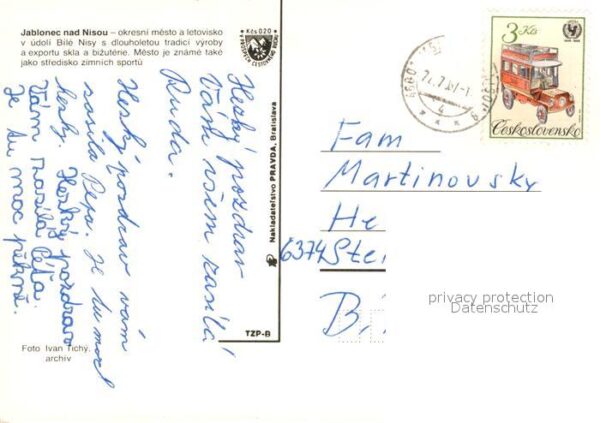 Jablonec nad Nisou – okresní město a letovisko
v údolí Bílé Nisy s dlouholetou tradicí výroby
a exportu skla a bižutérie. Město je známé také
jako středisko zimních sportů
Kčs 020
Hezký pozdrav
Vám všem zasílá
Ruda.
Hezký pozdrav vám
zasílá Pepa. Je tu moc
hezky. Hezký pozdrav
Vám zasílá Péťa.
Je tu moc pěkně.
Foto Ivan Tichý,
archív
Nakladatelstvo PRAVDA, Bratislava
TZP-B
3 Kčs
Československo
Fam
Martinovsky
He
6374 Stei
privacy protection
Datenschutz